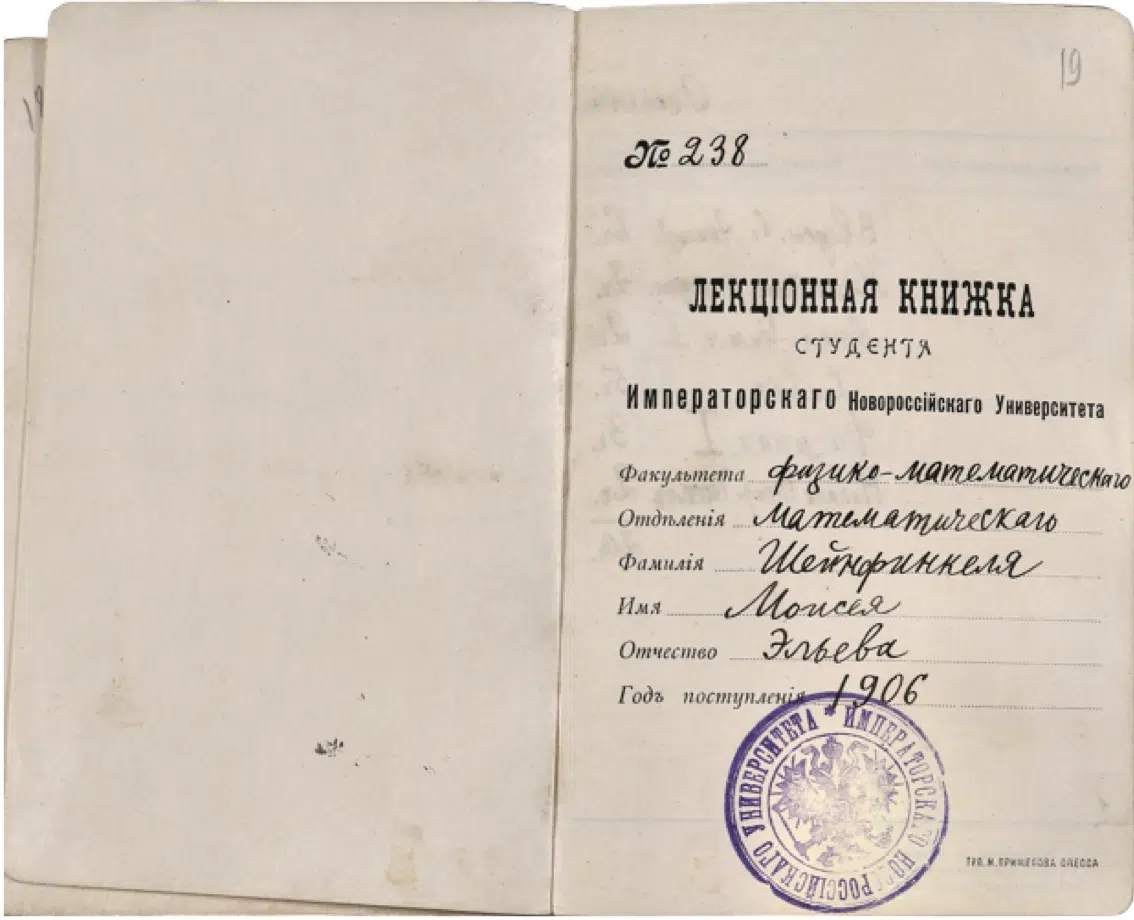 19
№ 238
ЛЕКЦІОННАЯ КНИЖКА
СТУДЕНТА
Императорскаго Новороссійскаго Университета
Факультета физико-математическаго
Отдѣленія Математическаго
Фамилія Шейнфинкеля
Имя Моисея
Отчество Эльева
Годъ поступленія 1906
ИМПЕРАТОРСКАГО НОВОРОССІЙСКАГО УНИВЕРСИТЕТА
ТИП. ОДЕССА